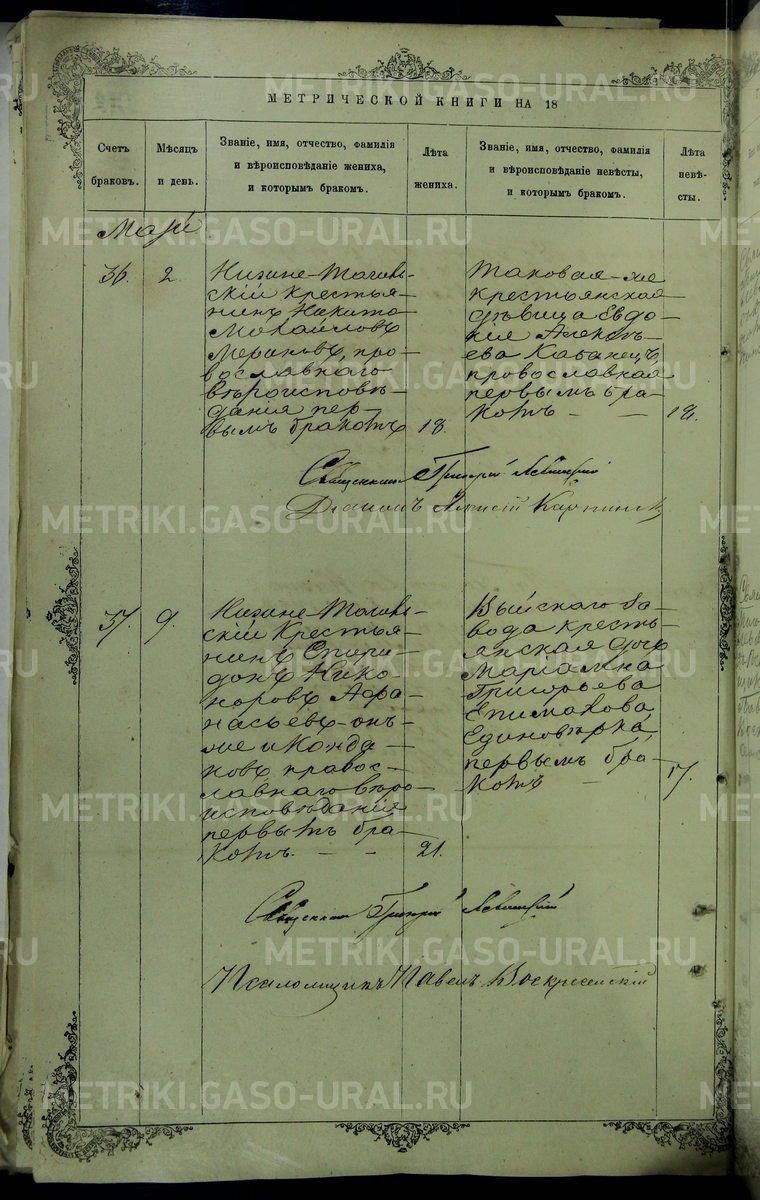 МЕТРИЧЕСКОЙ КНИГИ НА 18
Счетъ браковъ.
Мѣсяцъ и день.
Званіе, имя, отчество, фамилія
и вѣроисповѣданіе жениха,
и которымъ бракомъ.
Лѣта жениха.
Званіе, имя, отчество, фамилія
и вѣроисповѣданіе невѣсты,
и которымъ бракомъ.
Лѣта невѣ-
сты.
Май
36. 2
Нижне-Тагиль-
скій крестья-
нинъ Никита
Михайловъ
православнаго
вѣроисповѣ-
данія пер-
вымъ бракомъ 18.
Таковая-же
крестьянская
дѣвица Евдо-
кія Алексѣ-
ева Кабанецъ
православная
первымъ бра-
комъ - - 18.
Священникъ Григорій Левицкій
Діаконъ Алексій
37. 9.
Нижне-Тагиль-
скій крестья-
нинъ Спири-
донъ Нико-
норовъ Афа-
насьевъ-онъ-
же и Конда-
ковъ правос-
лавнаго вѣро-
исповѣданія
первымъ бра-
комъ. - - 21.
Выйскаго за-
вода кресть-
янская дочь
Маріамна
Григорьева
Епимахова
Единовѣрка,
первымъ бра-
комъ - 17.
Священникъ Григорій Левицкій
Псаломщикъ Павелъ Воскресенскій
METRIKI.GASO-URAL.RU